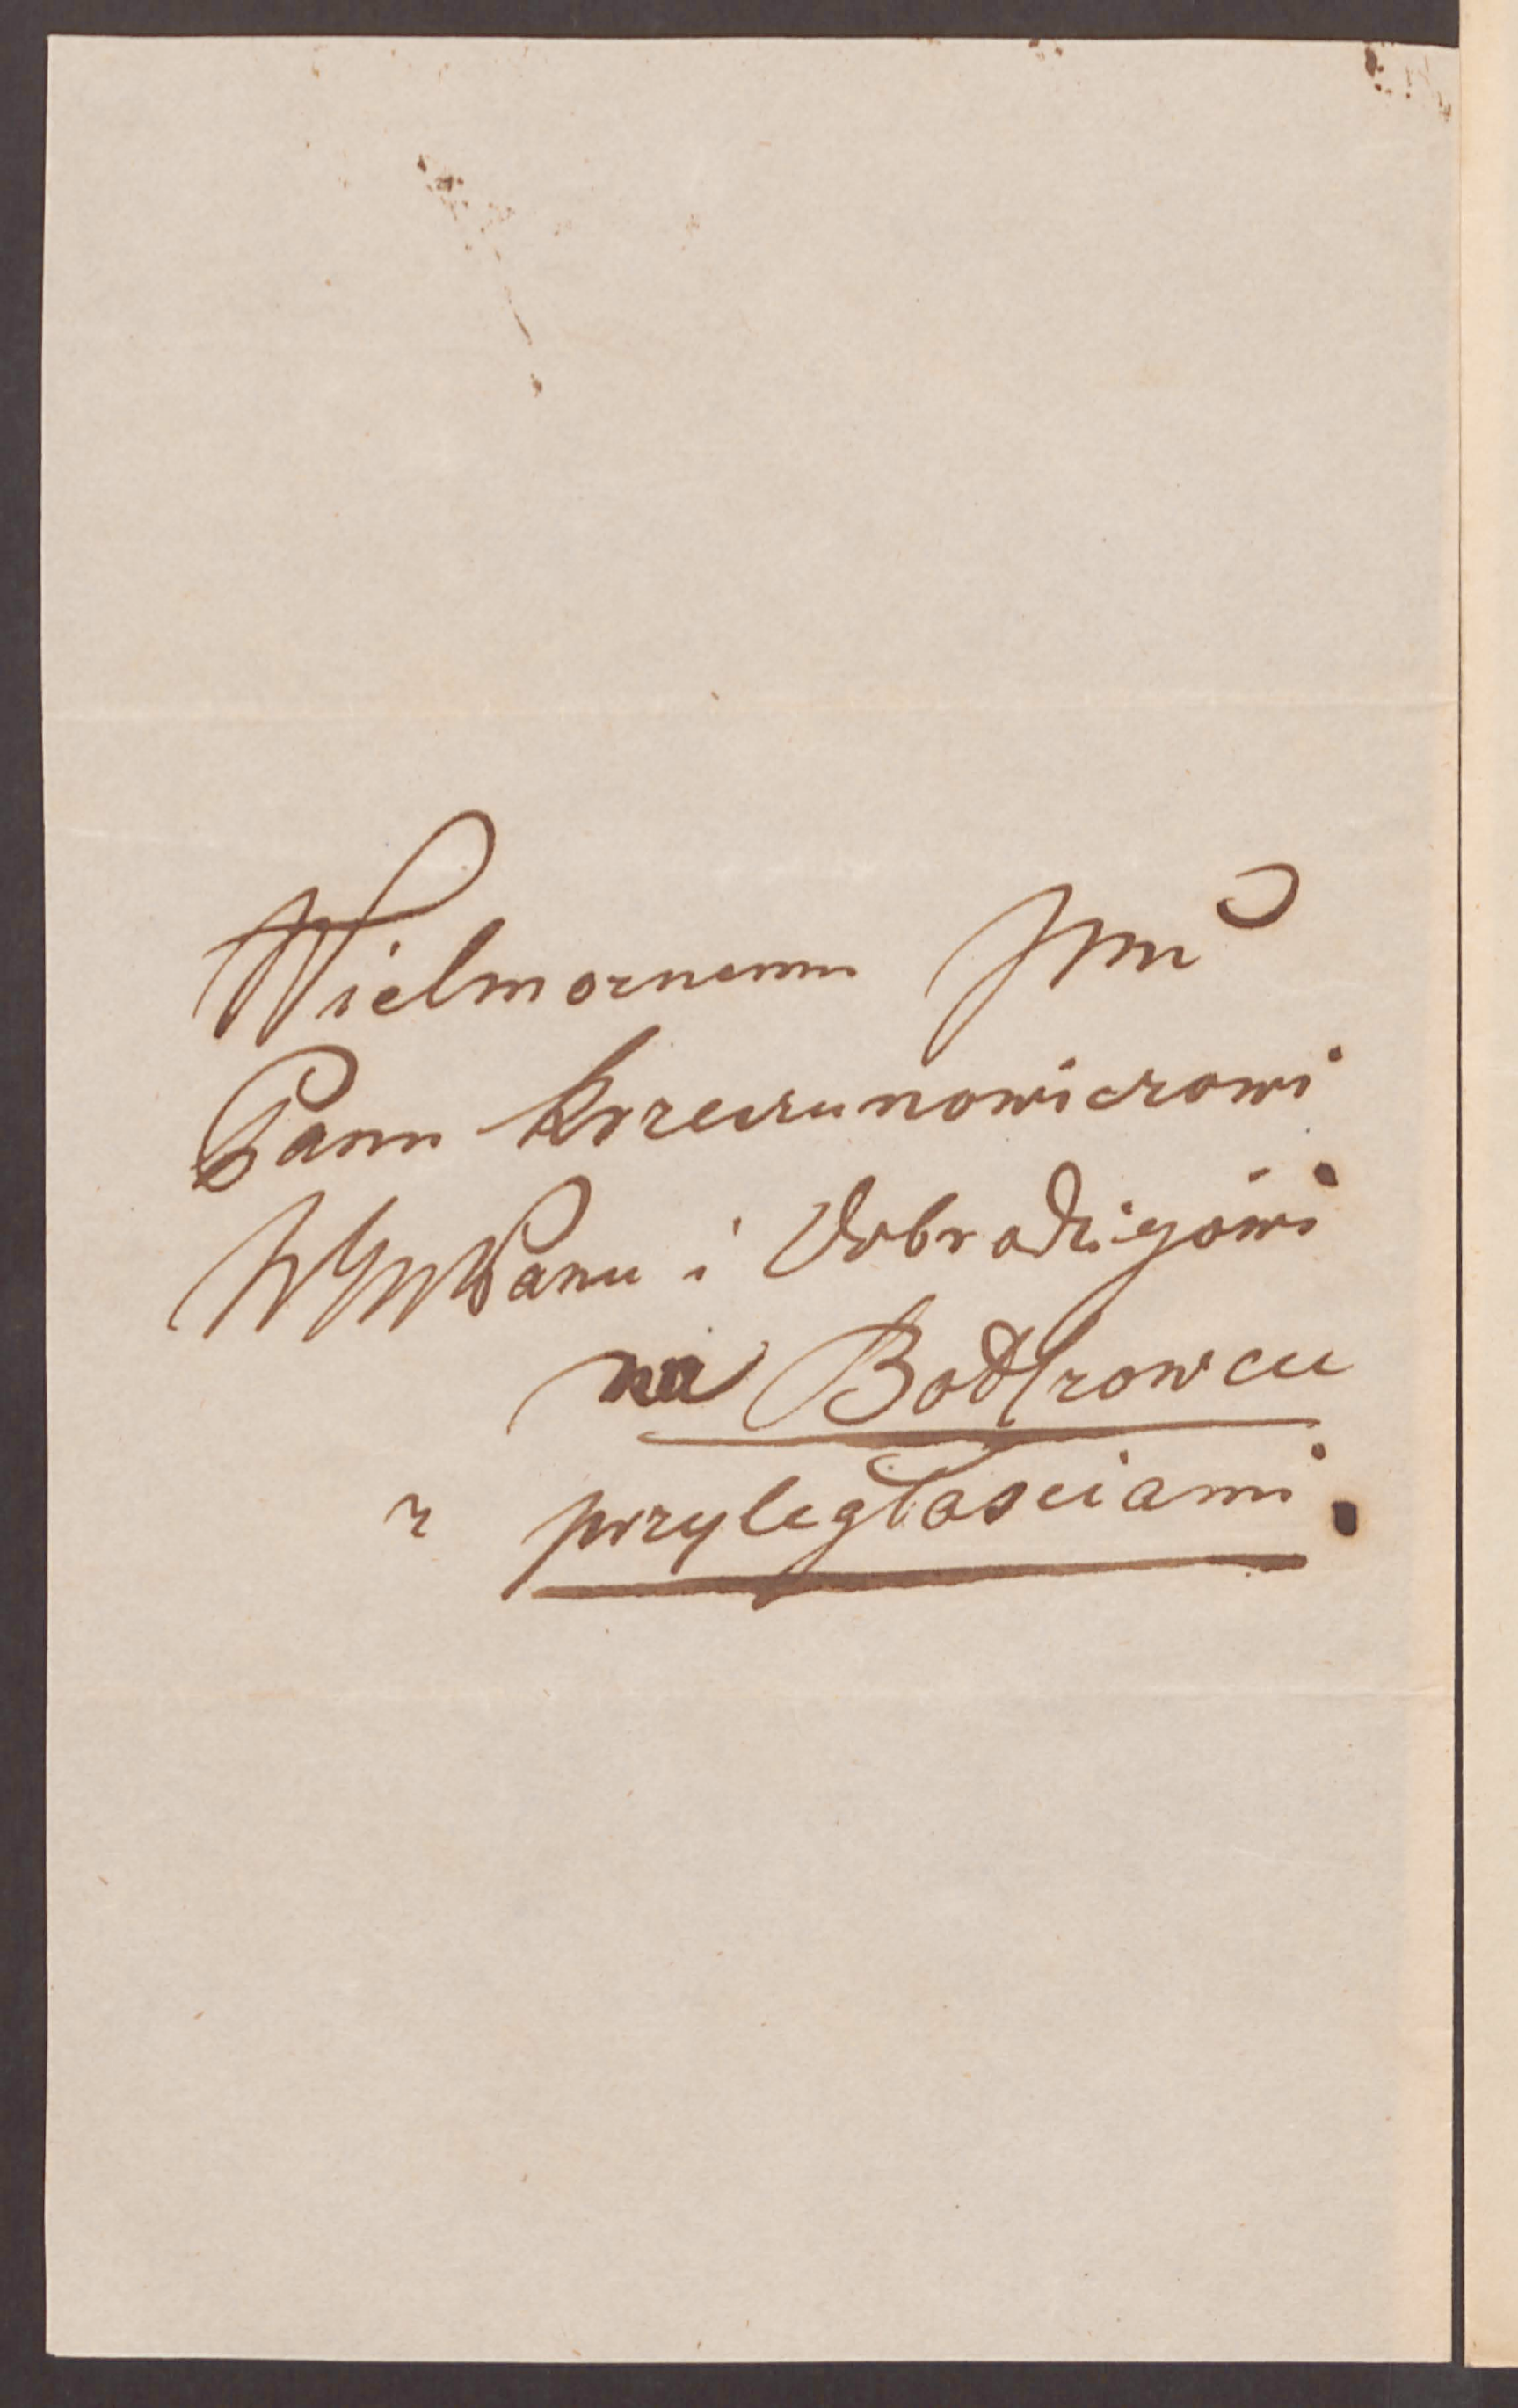 Wielmoznemu Jmć
Panu Krzeczunowiczowi
WJM Panu i Dobrodziejowi
na Bołszowcu
z przyległosciami.